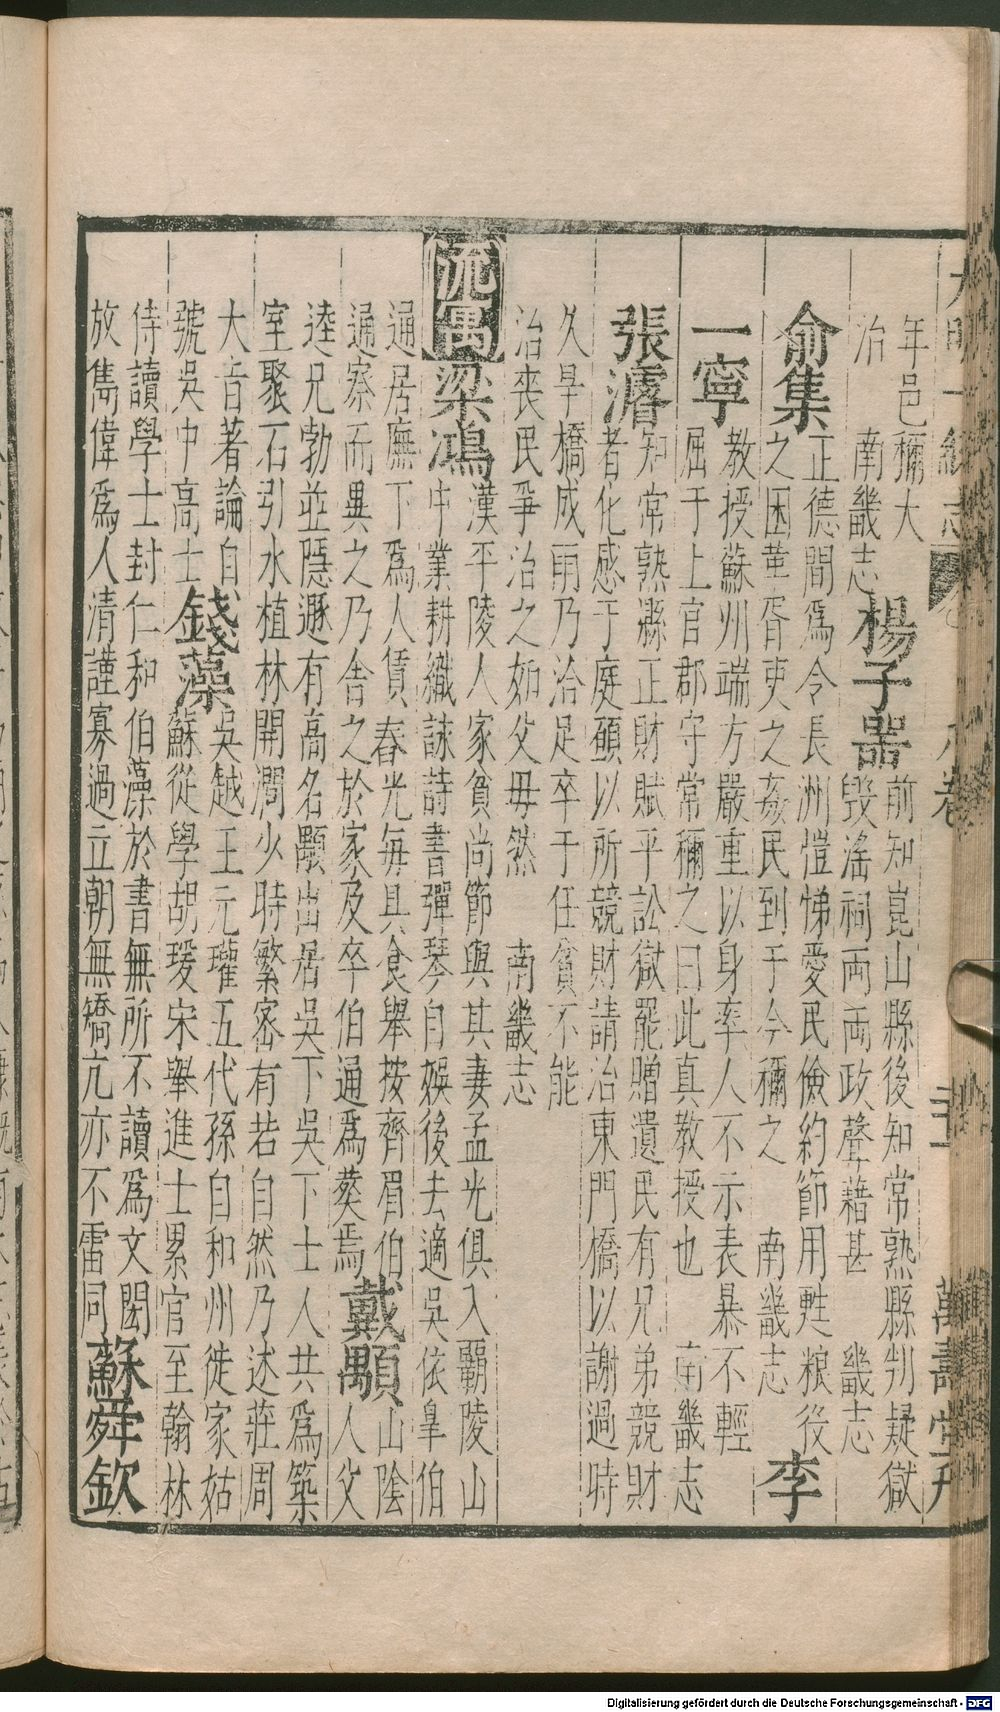 大明一統志 八卷 萬壽堂刋
年邑稱大
治 南畿志
楊子器
前知崑山縣後知常熟縣判疑獄
毀滛祠兩両政聲藉甚 畿志
俞集
正德間爲令長洲愷悌愛民儉約節用甦粮役
之困革胥吏之姦民到于今稱之 南畿志
李
一寧
教授蘇州端方嚴重以身率人不示表暴不輕
屈于上官郡守常稱之曰此真教授也 南畿志
張濬
知常熟縣正財賦平訟獄罷贈遺民有兄弟競財
者化感于庭願以所競財請治東門橋以謝過時
久旱橋成雨乃洽足卒于任貧不能
治丧民爭治之如父毋然 南畿志
流寓
梁鴻
漢平陵人家貧尚節與其妻孟光俱入覇陵山
中業耕織詠詩書彈琴自娛後去適吳依臯伯
通居廡下爲人賃舂光每具食舉按齊眉伯
通察而異之乃舍之於家及卒伯通爲葬焉
戴顒
山陰
人父
逵兄勃並隱遯有高名顒出居吳下吳下士人共爲築
室聚石引水植林開澗少時繁密有若自然乃述莊周
大旨著論自
號吳中高士
錢藻
吳越王元瓘五代孫自和州徙家姑
蘇從學胡瑗宋舉進士累官至翰林
侍讀學士封仁和伯藻於書無所不讀爲文閎
放雋偉爲人清謹寡過立朝無矯亢亦不雷同
蘇舜欽
Digitalisierung gefördert durch die Deutsche Forschungsgemeinschaft - DFG